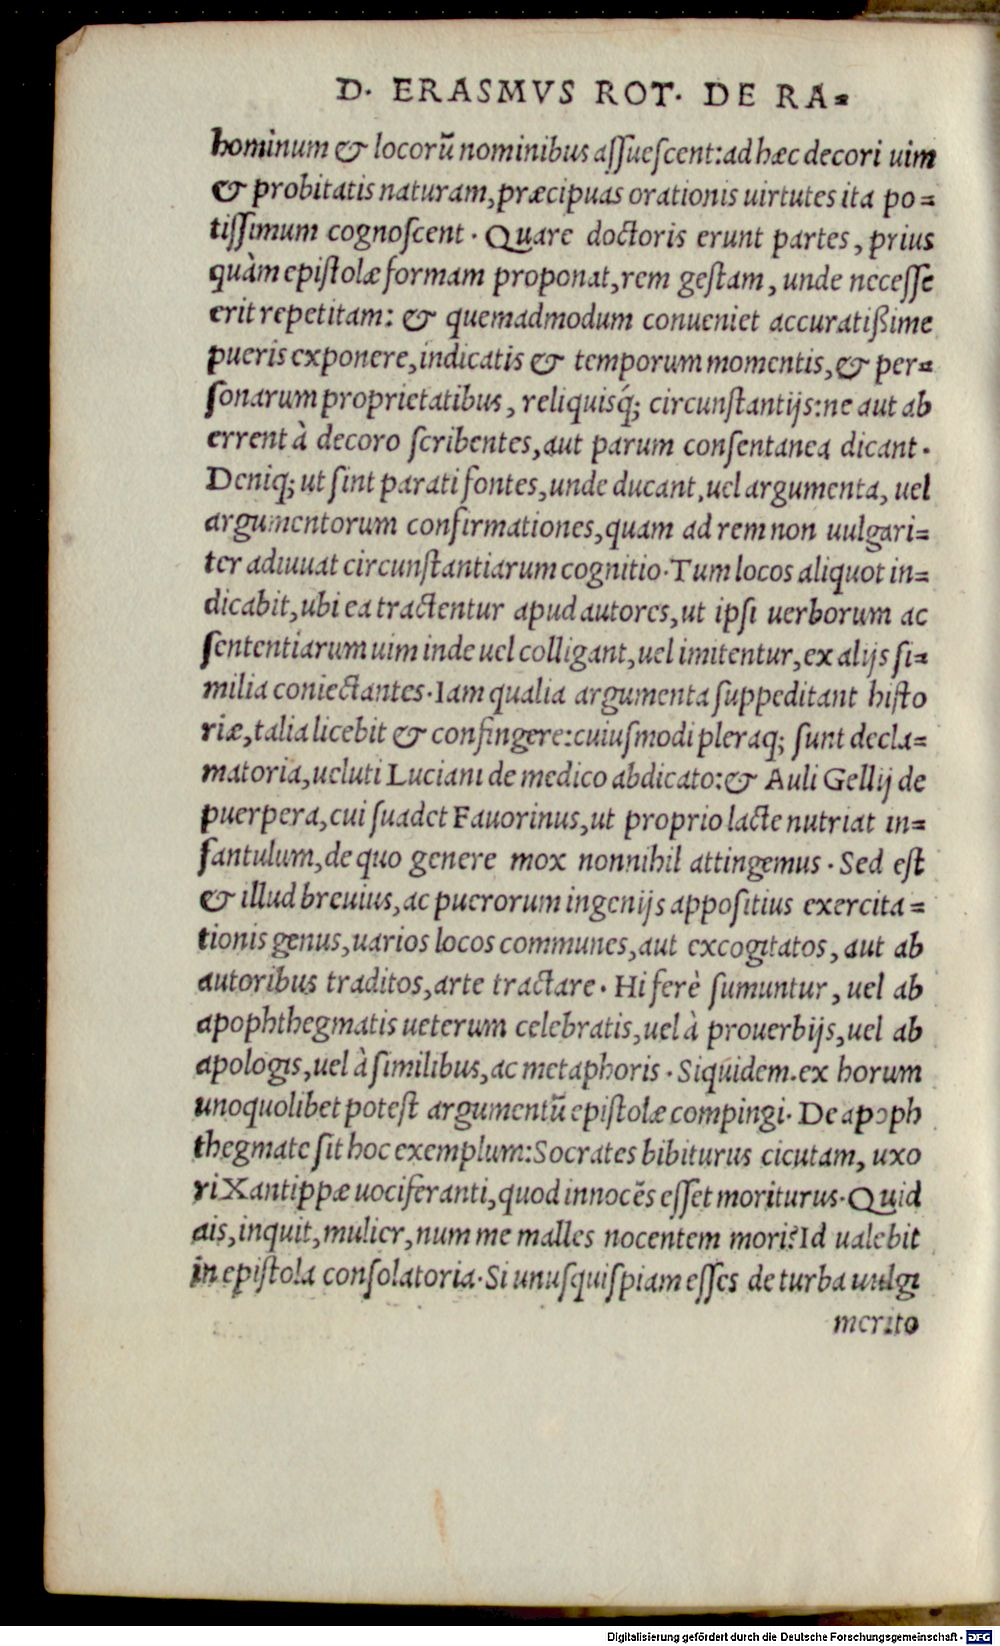 D. ERASMVS ROT. DE RA=
hominum & locorũ nominibus assuescent: ad hæc decori uim
& probitatis naturam, præcipuas orationis uirtutes ita po=
tissimum cognoscent. Quare doctoris erunt partes, prius
quàm epistolæ formam proponat, rem gestam, unde necesse
erit repetitam: & quemadmodum conueniet accuratißime
pueris exponere, indicatis & temporum momentis, & per=
sonarum proprietatibus, reliquisq́; circunstantijs: ne aut ab
errent à decoro scribentes, aut parum consentanea dicant.
Deniq; ut sint parati fontes, unde ducant, uel argumenta, uel
argumentorum confirmationes, quam ad rem non uulgari=
ter adiuuat circunstantiarum cognitio. Tum locos aliquot in=
dicabit, ubi ea tractentur apud autores, ut ipsi uerborum ac
sententiarum uim inde uel colligant, uel imitentur, ex alijs si=
milia coniectantes. Iam qualia argumenta suppeditant histo
riæ, talia licebit & confingere: cuiusmodi pleraq; sunt decla=
matoria, ueluti Luciani de medico abdicato: & Auli Gellij de
puerpera, cui suadet Fauorinus, ut proprio lacte nutriat in=
fantulum, de quo genere mox nonnihil attingemus. Sed est
& illud breuius, ac puerorum ingenijs appositius exercita=
tionis genus, uarios locos communes, aut excogitatos, aut ab
autoribus traditos, arte tractare. Hi ferè sumuntur, uel ab
apophthegmatis ueterum celebratis, uel à prouerbijs, uel ab
apologis, uel à similibus, ac metaphoris. Siquidem. ex horum
unoquolibet potest argumentũ epistolæ compingi. De apoph
thegmate sit hoc exemplum: Socrates bibiturus cicutam, uxo
ri Xantippæ uociferanti, quod innocẽs esset moriturus. Quid
ais, inquit, mulier, num me malles nocentem mori? Id ualebit
in epistola consolatoria. Si unusquispiam esses de turba uulgi
merito
Digitalisierung gefördert durch die Deutsche Forschungsgemeinschaft - DFG